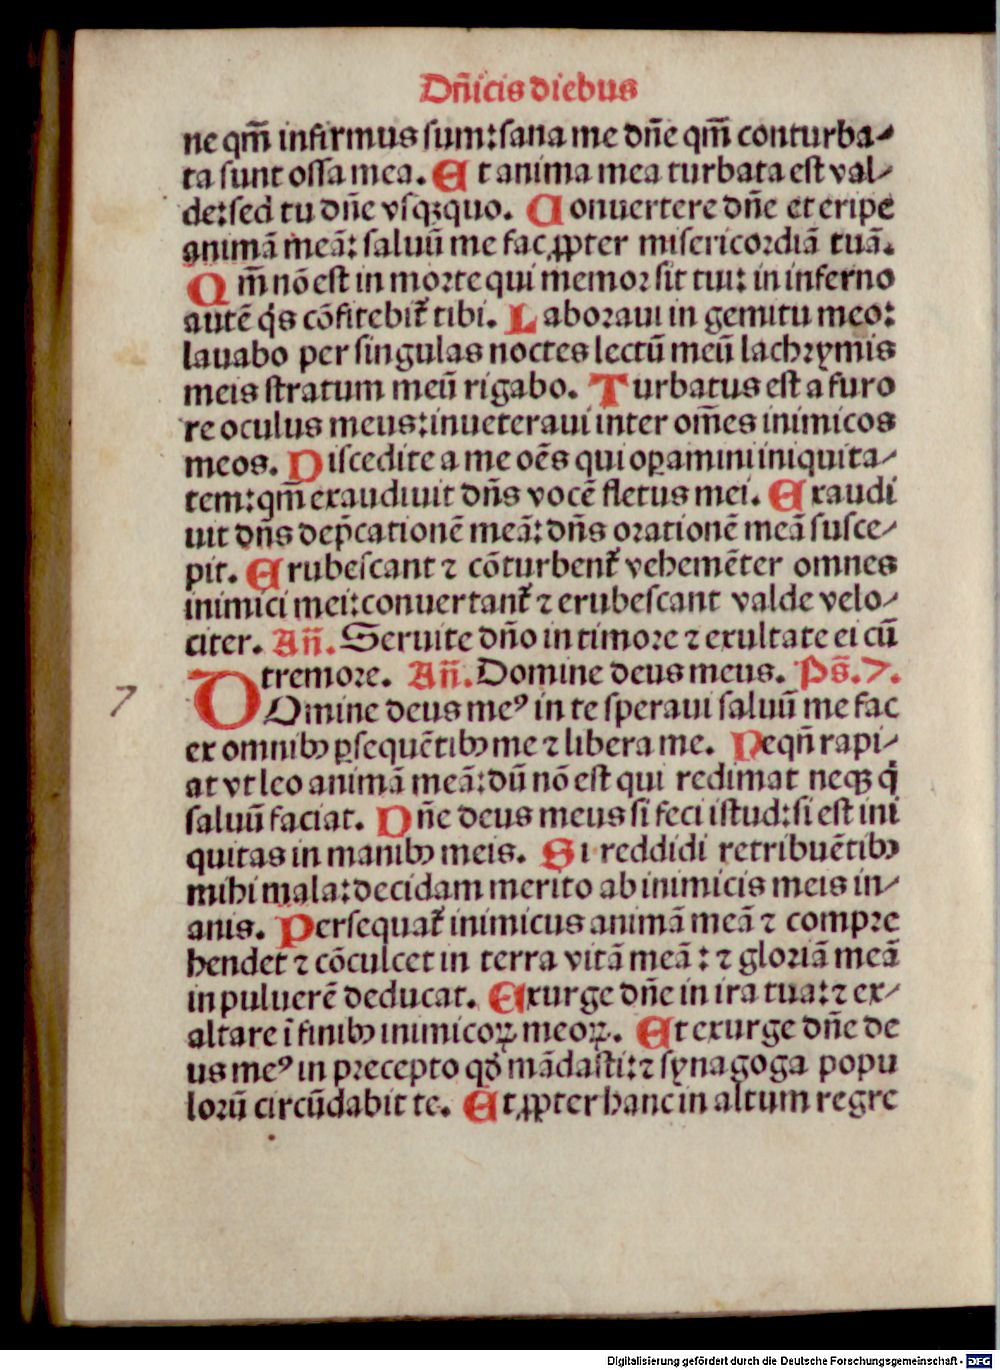 Dñicis diebus
ne qm̄ infirmus sum:sana me dñe qm̄ conturba-
ta sunt ossa mea. Et anima mea turbata est val-
de:sed tu dñe vsqꝫquo. Conuertere dñe et eripe
animā meā: saluū me fac ꝓpter misericordiā tuā.
Qm̄ nō est in morte qui memor sit tui: in inferno
autē q̇s cōfitebit᷑ tibi. Laboraui in gemitu meo:
lauabo per singulas noctes lectū meū lachrymis
meis stratum meū rigabo. Turbatus est a furo
re oculus meus:inueteraui inter om̄es inimicos
meos. Discedite a me oēs qui oꝑamini iniquita-
tem:qm̄ exaudiuit dñs vocē fletus mei. Exaudi
uit dñs dep̄cationē meā: dñs orationē meā susce-
pit. Erubescant ⁊ cōturbent᷑ vehemēter omnes
inimici mei:conuertant᷑ ⁊ erubescant valde velo-
citer. Añ. Seruite dño in timore ⁊ exultate ei cū
tremore. Añ. Domine deus meus. Ps̄. 7.
7 DOmine deus meꝰ in te speraui saluū me fac
ex omnibꝰ ꝑsequētibꝰ me ⁊ libera me. Neqñ rapi-
at vt leo animā meā:dū nō est qui redimat neqꝫ q̇
saluū faciat. Dñe deus meus si feci istud:si est ini
quitas in manibꝰ meis. Si reddidi retribuētibꝰ
mihi mala:decidam merito ab inimicis meis in-
anis. Persequat᷑ inimicus animā meā ⁊ compre
hendet ⁊ cōculcet in terra vitā meā : ⁊ gloriā meā
in puluerē deducat. Exurge dñe in ira tua:⁊ ex-
altare ī finibꝰ inimicoꝝ meoꝝ. Et exurge dñe de
us meꝰ in precepto qđ mādasti:⁊ synagoga popu
lorū circūdabit te. Et ꝓpter hanc in altum regre
Digitalisierung gefördert durch die Deutsche Forschungsgemeinschaft - DFG